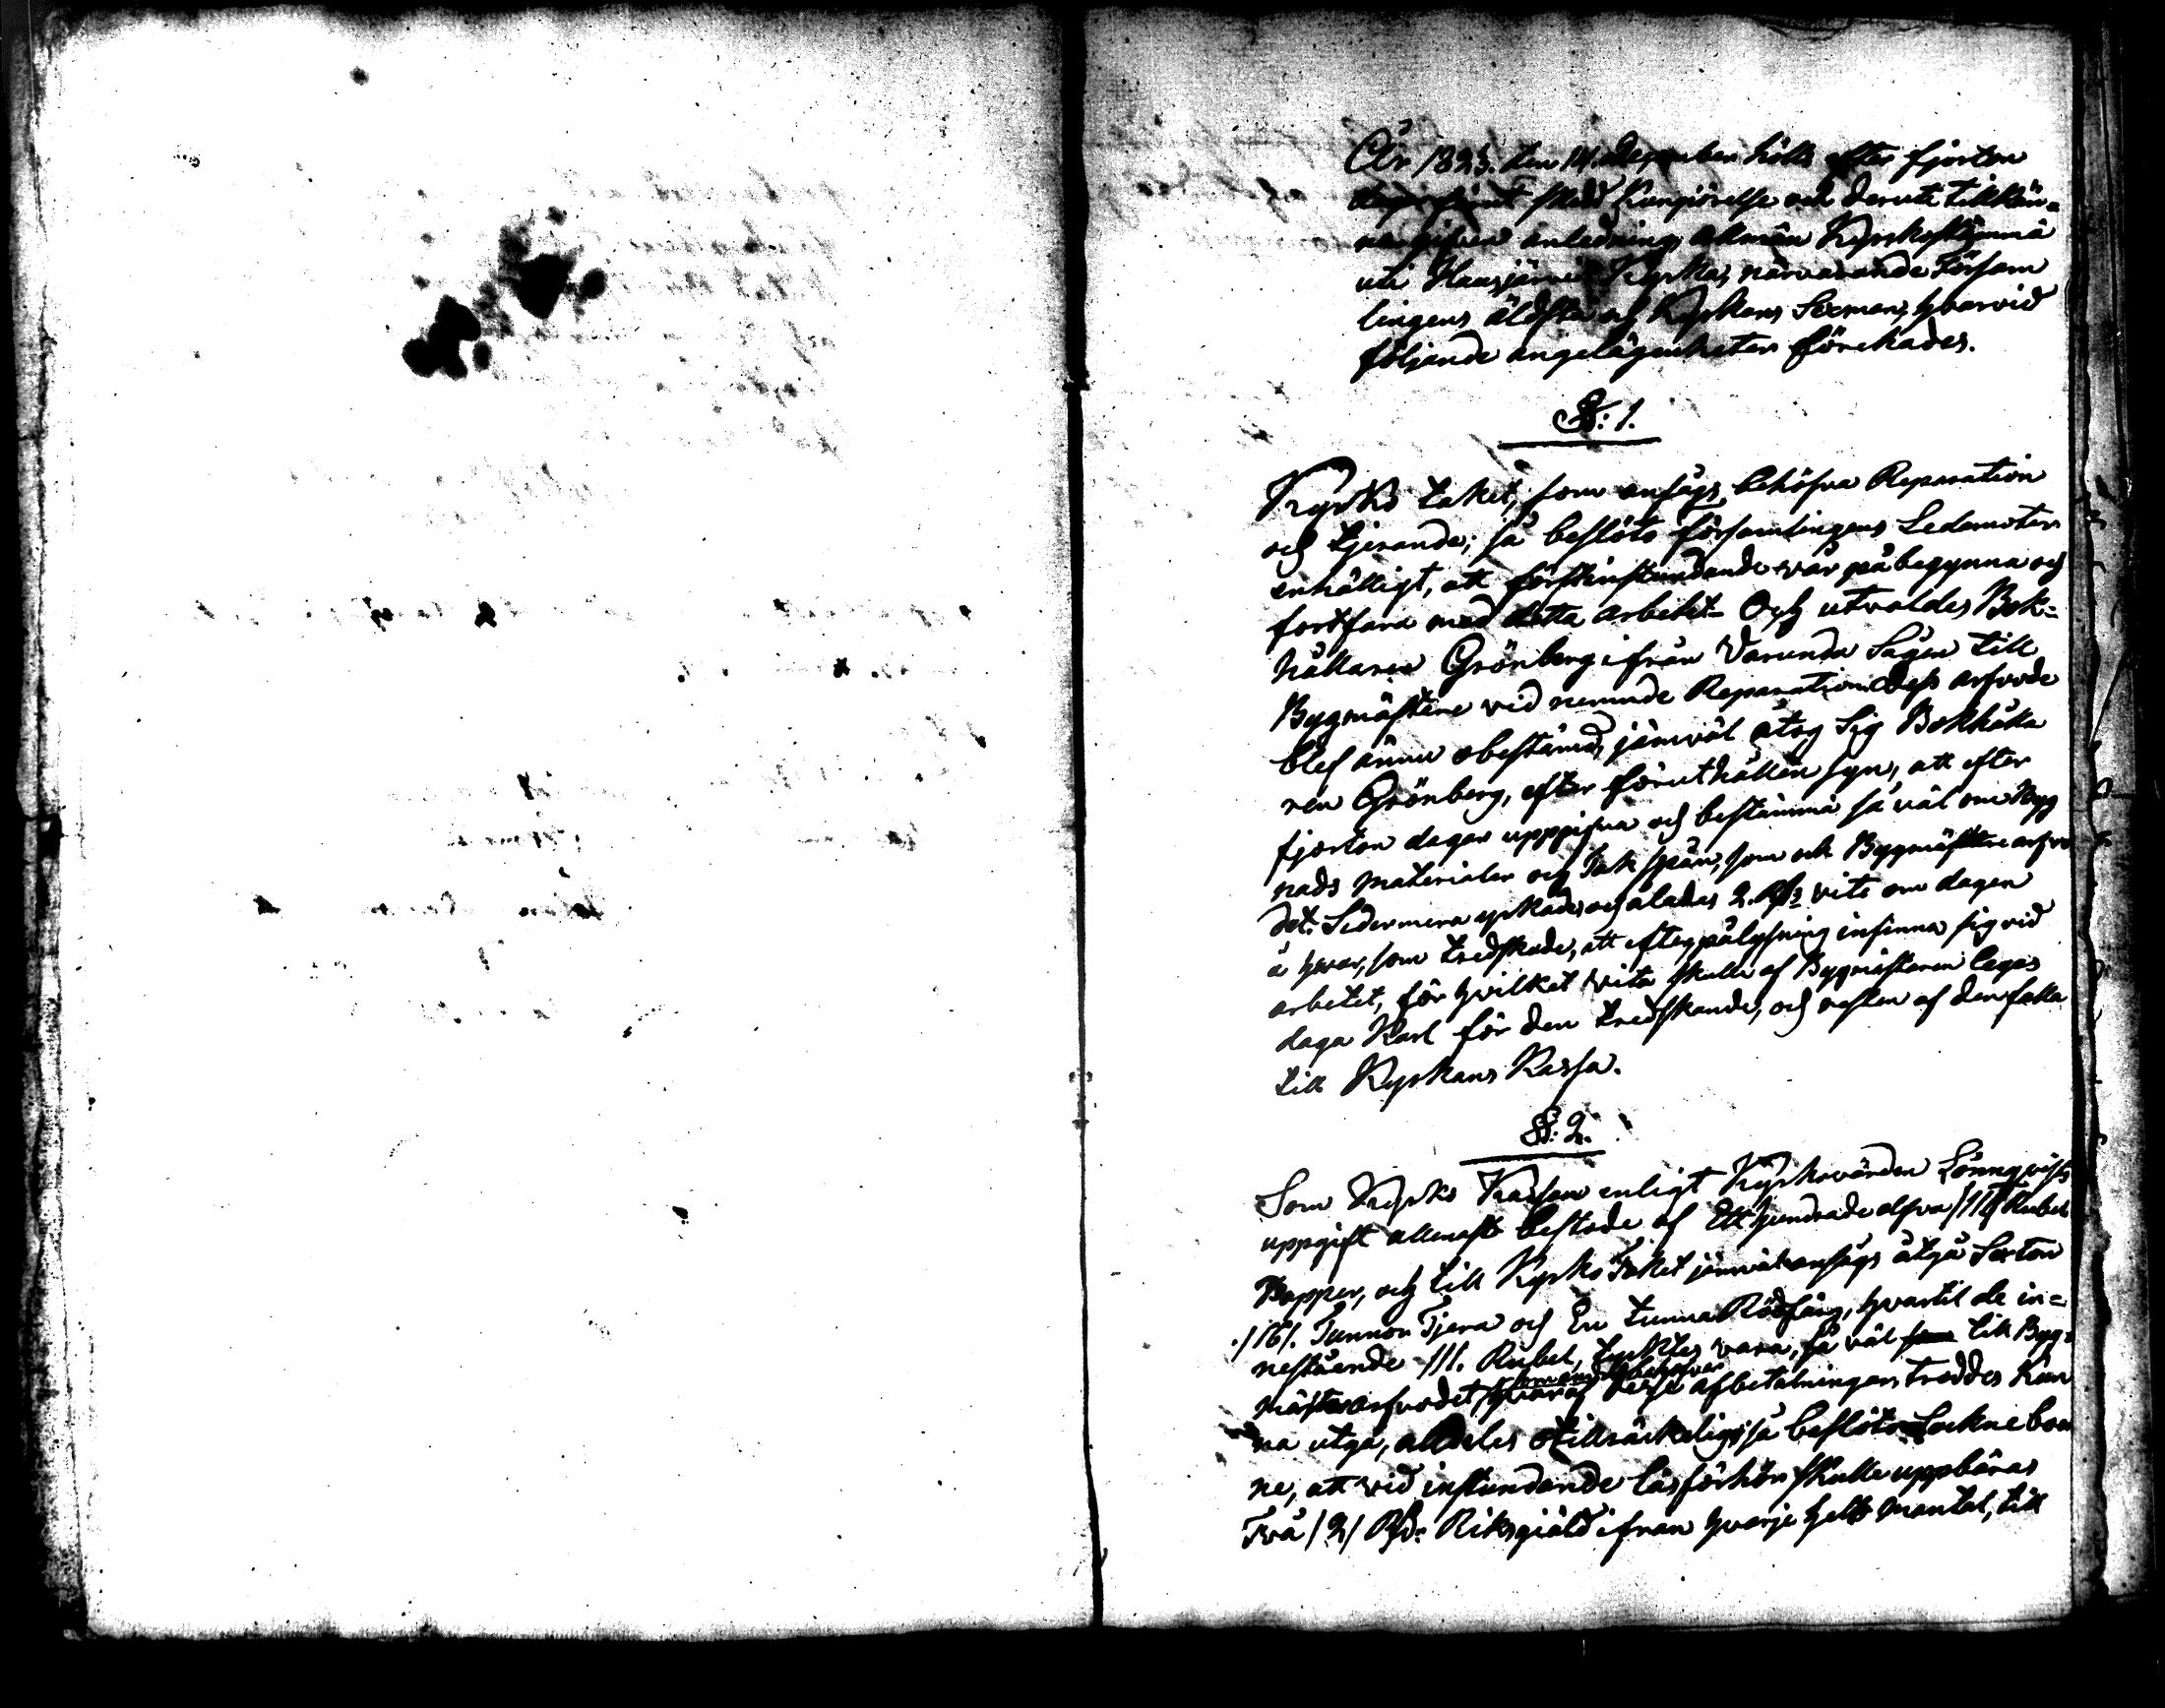 År 1823. den 14. december hölts efter fjorton
dagar förut skedd Kungiörelse och deruti tillkän=
na gifven anledning, allmän Kyrkostämma
uti Hausjärvi Kyrka, närvarande Försam
lingens äldsta och Kyrkans Sexmän, hvarvid
följande angelägenheter förehades.
§: 1.
Kyrko taket, som ansågs behöfva Reparation
och tjerande; så beslöto församlingens Ledamöter
enhälligt, att förstinstundande vår på begynna och
fortfara med detta arbetet. Och utvaldes Bok=
hållaren Grönberg ifrån Varunda Sågen till
Bygmästare vid nemnde Reparation. Dess arfvode
blef ännu obestämd, jämväl åtog Sig Bokhålla
ren Grönberg, efter förut hållen syn, att efter
fjorton dagar uppgifva och bestämma så väl om Byg
nads materialer och Tak spån, som ock Bygmästare arfvo
det. Sedermera yrkades och ålades 2. Rd: vite om dagen
å hvar, som tredskade, att efter pålysning infinna sig vid
arbetet, för hvilket vite skulle af Bygmästaren legas
daga Karl för den tredskande, och resten af den falla
till Kyrkans Kassa.
§: 2.
Som Kyrko Kassan enligt Kyrkovärden Lönnqvists
uppgift allenast bestode af Ett hundrade elfva /111/ Rubel
Bopper, och till Kyrko Taket jämväl ansågs åtgå Sexton
/16/. Tunnor Tjera och En tunna Rödfärg, hvartil de in=
nestående 111. Rubel, tycktes vara, så väl till Byg=
mästar arfvodet som andra behofver hvaraf desse afbetalningar troddes kun
na utgå, alldeles otillräckeligt; så beslöto Socknebon
ne, att vid instundande läsförhör skulle uppbäras
Två /2/ Rd: Riksgiäld ifrån hvarje helt mantal, till